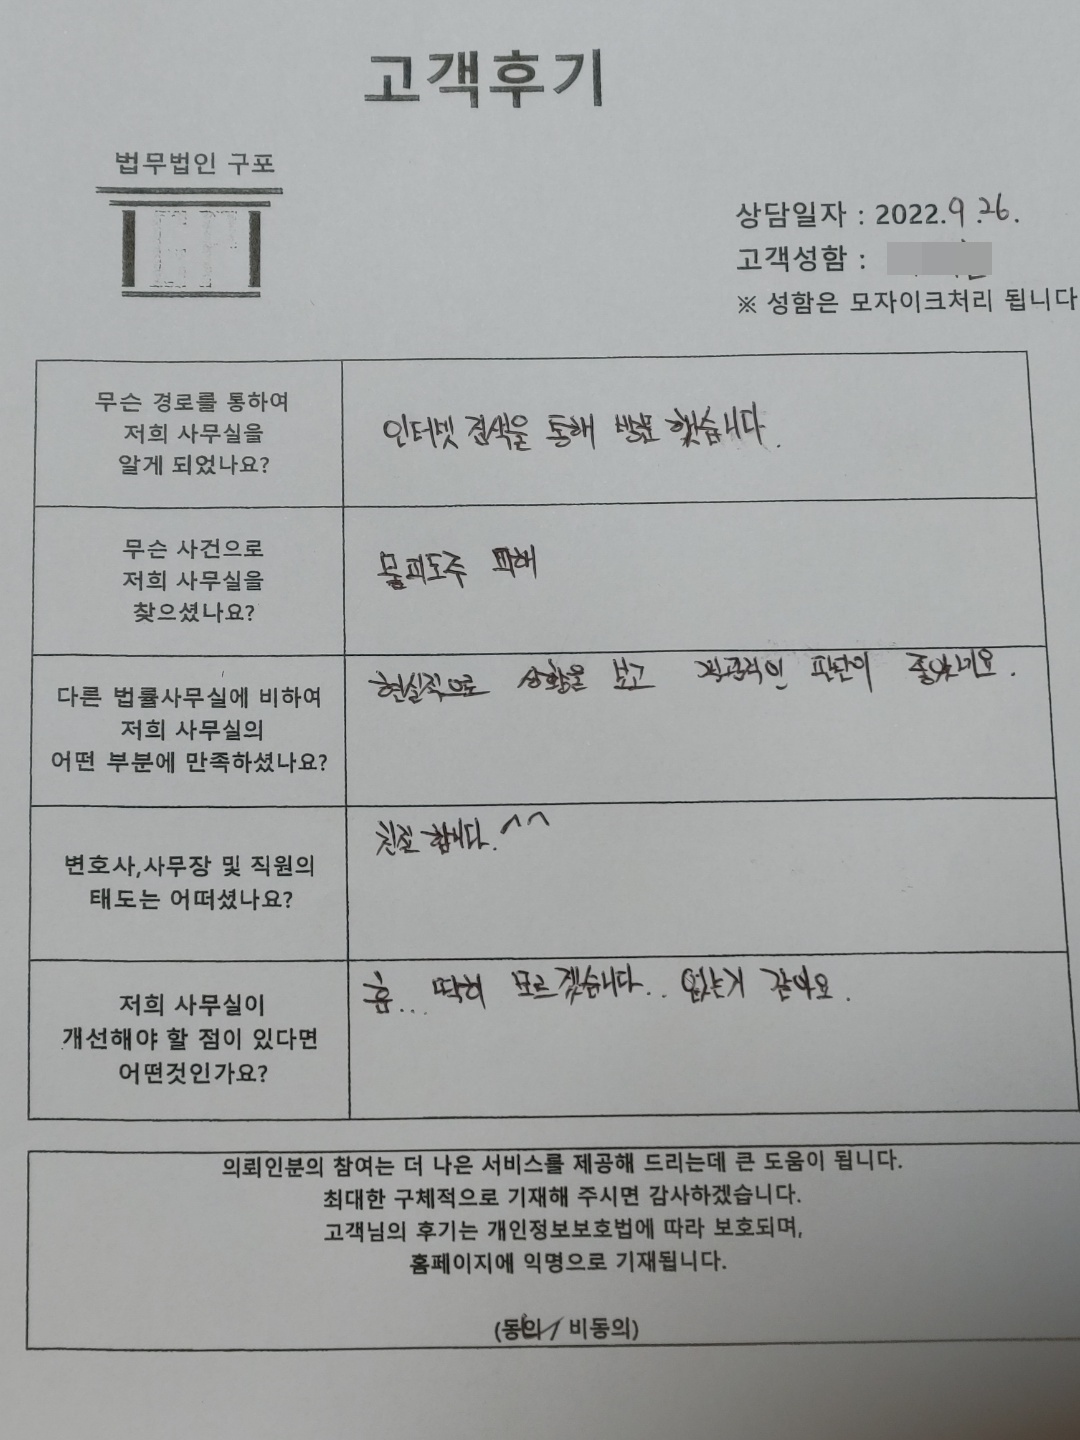 고객후기
법무법인 구포
GP
상담일자 : 2022.9.26.
고객성함 :
※ 성함은 모자이크처리 됩니다
무슨 경로를 통하여
저희 사무실을
알게 되었나요?
인터넷 검색을 통해 방문 했습니다.
무슨 사건으로
저희 사무실을
찾으셨나요?
물피도주 피해
다른 법률사무실에 비하여
저희 사무실의
어떤 부분에 만족하셨나요?
현실적으로 상황을 보고 객관적인 판단이 좋았네요.
변호사,사무장 및 직원의
태도는 어떠셨나요?
친절 합니다.^^
저희 사무실이
개선해야 할 점이 있다면
어떤것인가요?
흠... 딱히 모르겠습니다.. 없는거 같아요.
의뢰인분의 참여는 더 나은 서비스를 제공해 드리는데 큰 도움이 됩니다.
최대한 구체적으로 기재해 주시면 감사하겠습니다.
고객님의 후기는 개인정보보호법에 따라 보호되며,
홈페이지에 익명으로 기재됩니다.
(동의/ 비동의)